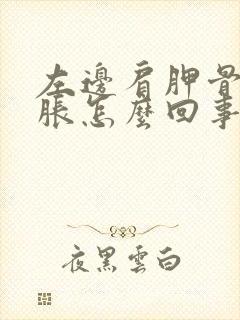 左邊肩胛骨
脹怎麼回事
夜黑雲白